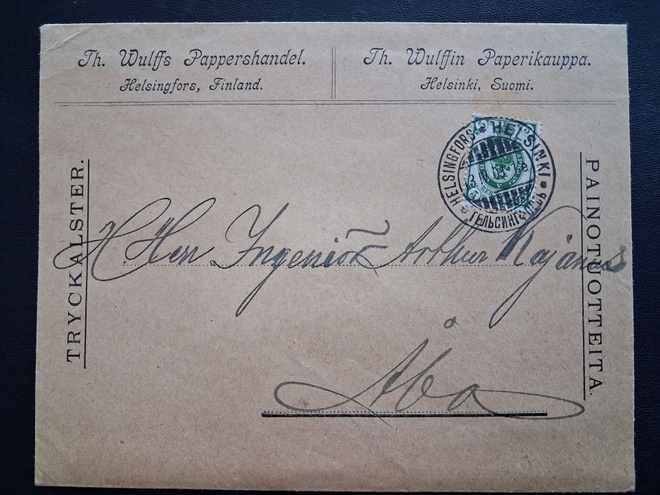 Th. Wulffs Pappershandel.
Helsingfors, Finland.
Th. Wulffin Paperikauppa.
Helsinki, Suomi.
HELSINGFORS * HELSINKI
ГЕЛЬСИНГФОРСЪ
TRYCKALSTER.
PAINOTUOTTEITA.
H. Herr Ingeniör Arthur Kajanus
Åbo